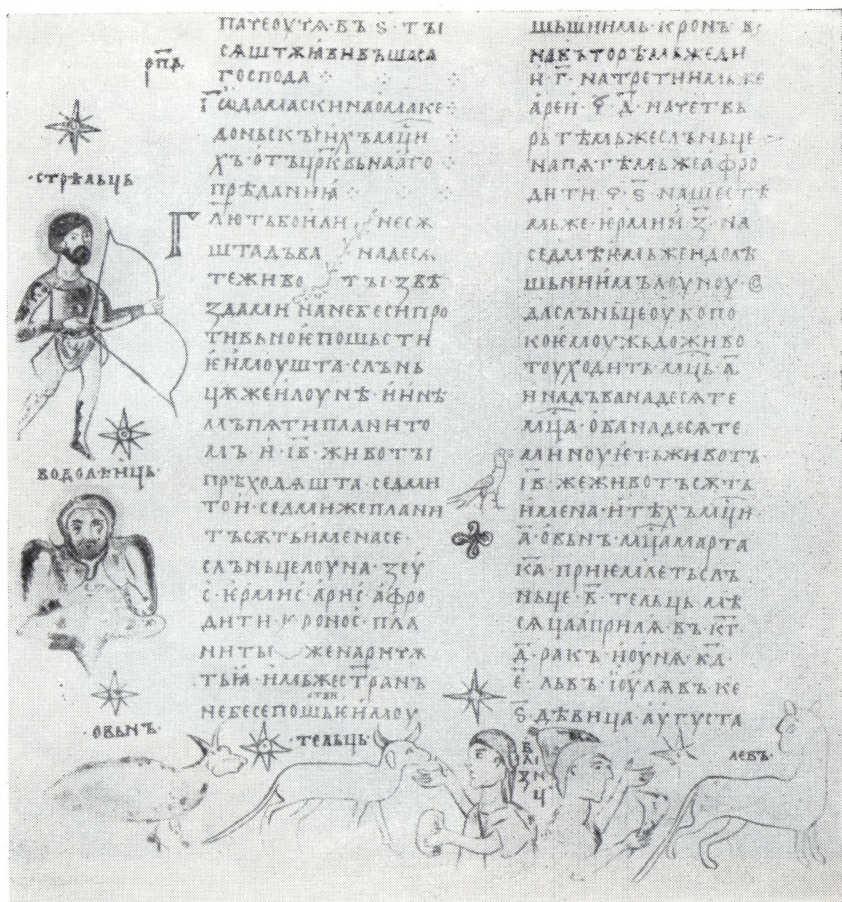 рп҃д
·стрѣльць
водолѣиць·
·овьнъ·
патеоутѫ·въ ѕ·ты
сѧштѫививъшаса
господа
І҃ѡдамаскинаомаке
доньскꙑихъмц҃и
хъ·отъцр҃квьнааго
прѣданиꙗ
Г҃лютьбоили несѫ
штадъва надесѧ
теживо тꙑ·звѣ
здами нанебесипро
тивьноѥпошьсти
ѥимоушта·слънь
цѫжеилоунѣ·иинѣ
мъпѧтипланито
мъ·и·і҃в·животꙑ
прѣходѧшта·седми
тои·седмижеплани
тъсѫтьименасе·
слъньцелоуна·зеу
с·ѥрмис·арис·афро
дити·кронос·пла
нитꙑ женаричѫ
тьꙗ·имьжестранъ
небесепошьѥимоу
·тельць·
шьшиимь·кронъ в҃·
навъторѣмьжеди
и·г҃·натретиимьже
ареи·ꙉ·д҃·начетвь
рьтѣмьжеслъньце
напѧтѣмьжеафро
дити·ꙉ·ѕ҃·нашестѣ
мьже·ѥрмии·з҃·на
седмѣимьженидолѣ
шьниимьлоуноу·
даслъньцеоукопо
коѥмоужьдоживо
тоуходить·мц҃ь·а҃·
инадъванадесѧте
мц҃а·обанадесѧте
миноуѥтьживотъ·
і҃в·жеживотъсѫть
имена·итѣхъмц҃и·
а҃·овьнъ·мц҃амарта
к҃а·приѥмлетьслъ
ньце·в҃·тельць мѣ
сѧцааприлꙗ въ к҃г·
д҃·ракъ июунꙗ·к҃д·
е҃·львъ·іоулꙗвъ ке
ѕ҃·дѣвица·аугуста
близнц
левъ·